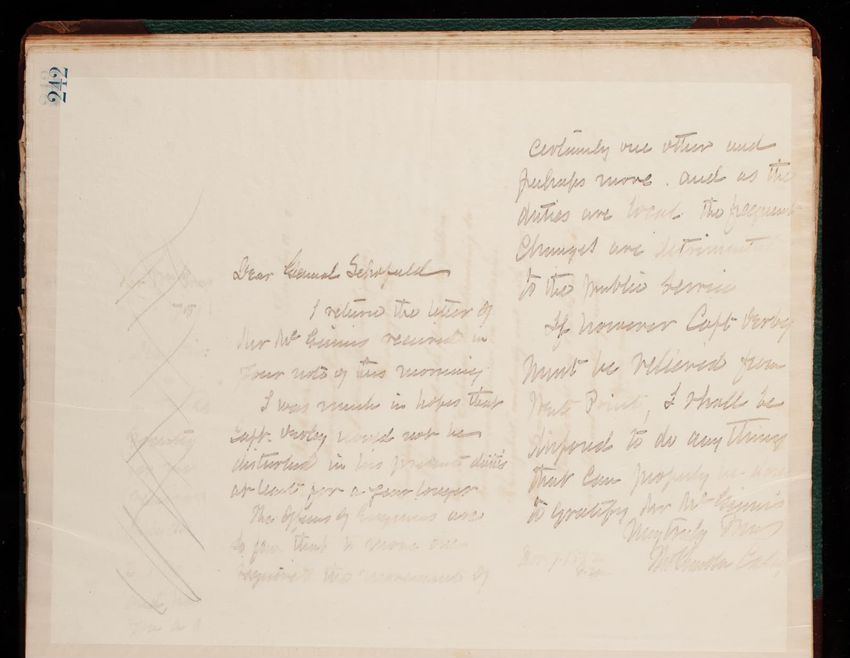 242
Dear General Schofield
I return the letter of
Mr McGinnis received in
your note of this morning
I was much in hopes that
Capt. Derby would not be
disturbed in his present duties
at least for a year longer
The officers of Engineers are
so few that to move one
requires the movement of
certainly one other and
perhaps more. and as the
duties are local the frequent
changes are detrimental
to the public service
If however Capt Derby
must be relieved from
West Point, I shall be
disposed to do anything
that can properly be done
to gratify Mr McGinnis
Very truly Yours
Thos Lincoln Casey